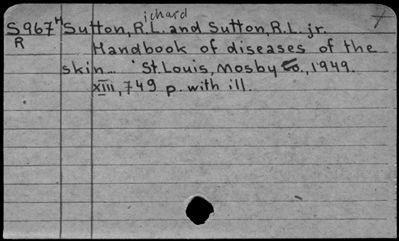 ichard
S967H Sutton, R.L. and Sutton, R.L. jr.
R Handbook of diseases of the
skin... St. Louis, Mosby Co., 1949.
XIII, 749 p. with ill.